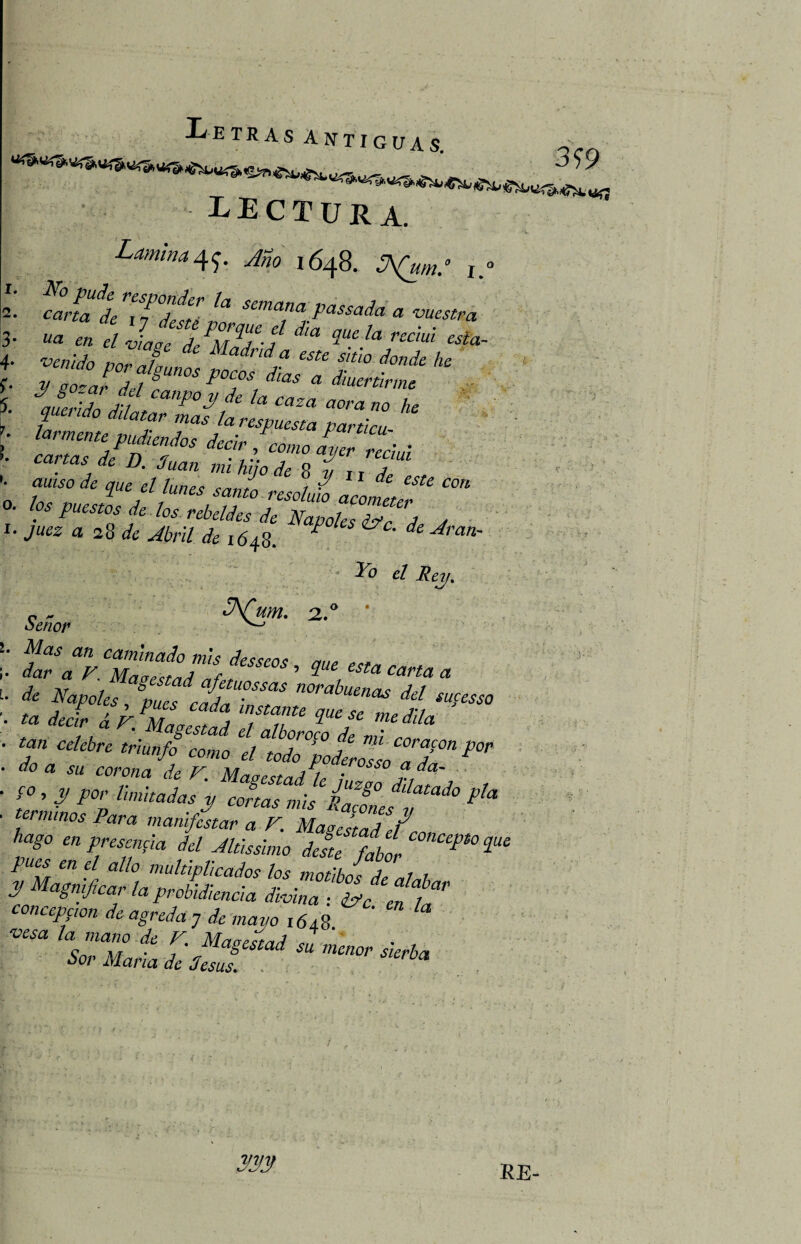 LETRAS ANTIGUAS. 359
LECTURA.
Lamina 45. Año 1648. Num.° 1.°
1. No pude responder la semana passada a vuestra
2. carta de 17 deste porque el dia que la reciui esta-
3. ua en el viage de Madrid a este sitio donde he
4. venido por algunos pocos dias a diuertirme
5. y gozar del canpo y de la caza aora no he
6. querido dilatar mas la respuesta particu-
7. larmente pudiendos decir, como ayer reciui
8. cartas de D. Juan mi hijo de 8 y 11 de este con
9. auiso de que el lunes santo resoluio acometer
10. los puestos de los rebeldes de Napoles &c. de Aran-
11. juez a 28 de Abril de 1648.
Yo el Rey.
Num. 2.°
Señor
Mas an caminado mis desseos, que esta carta a
dar a V. Magestad afetuossas norabuenas del suçesso
de Napoles, pues cada instante que se me dila
ta decir á V. Magestad el alboroço de mi coraçon por
tan celebre triunfo como el todo poderosso a da-
do a su corona de V. Magestad le juzgo dilatado pla
ço, y por limitadas y cortas mis Raçones y
terminos Para manifestar a V. Magestad el concepto que
hago en presençia del Altissimo deste fabor
pues en el allo multiplicados los motibos de alabar
y Magnificar la probidiencia divina: &c. en la
concepçion de agreda 7 de mayo 1648.
vesa la mano de V. Magestad su menor sierba
Sor Maria de Jesus.
yyy
RE-